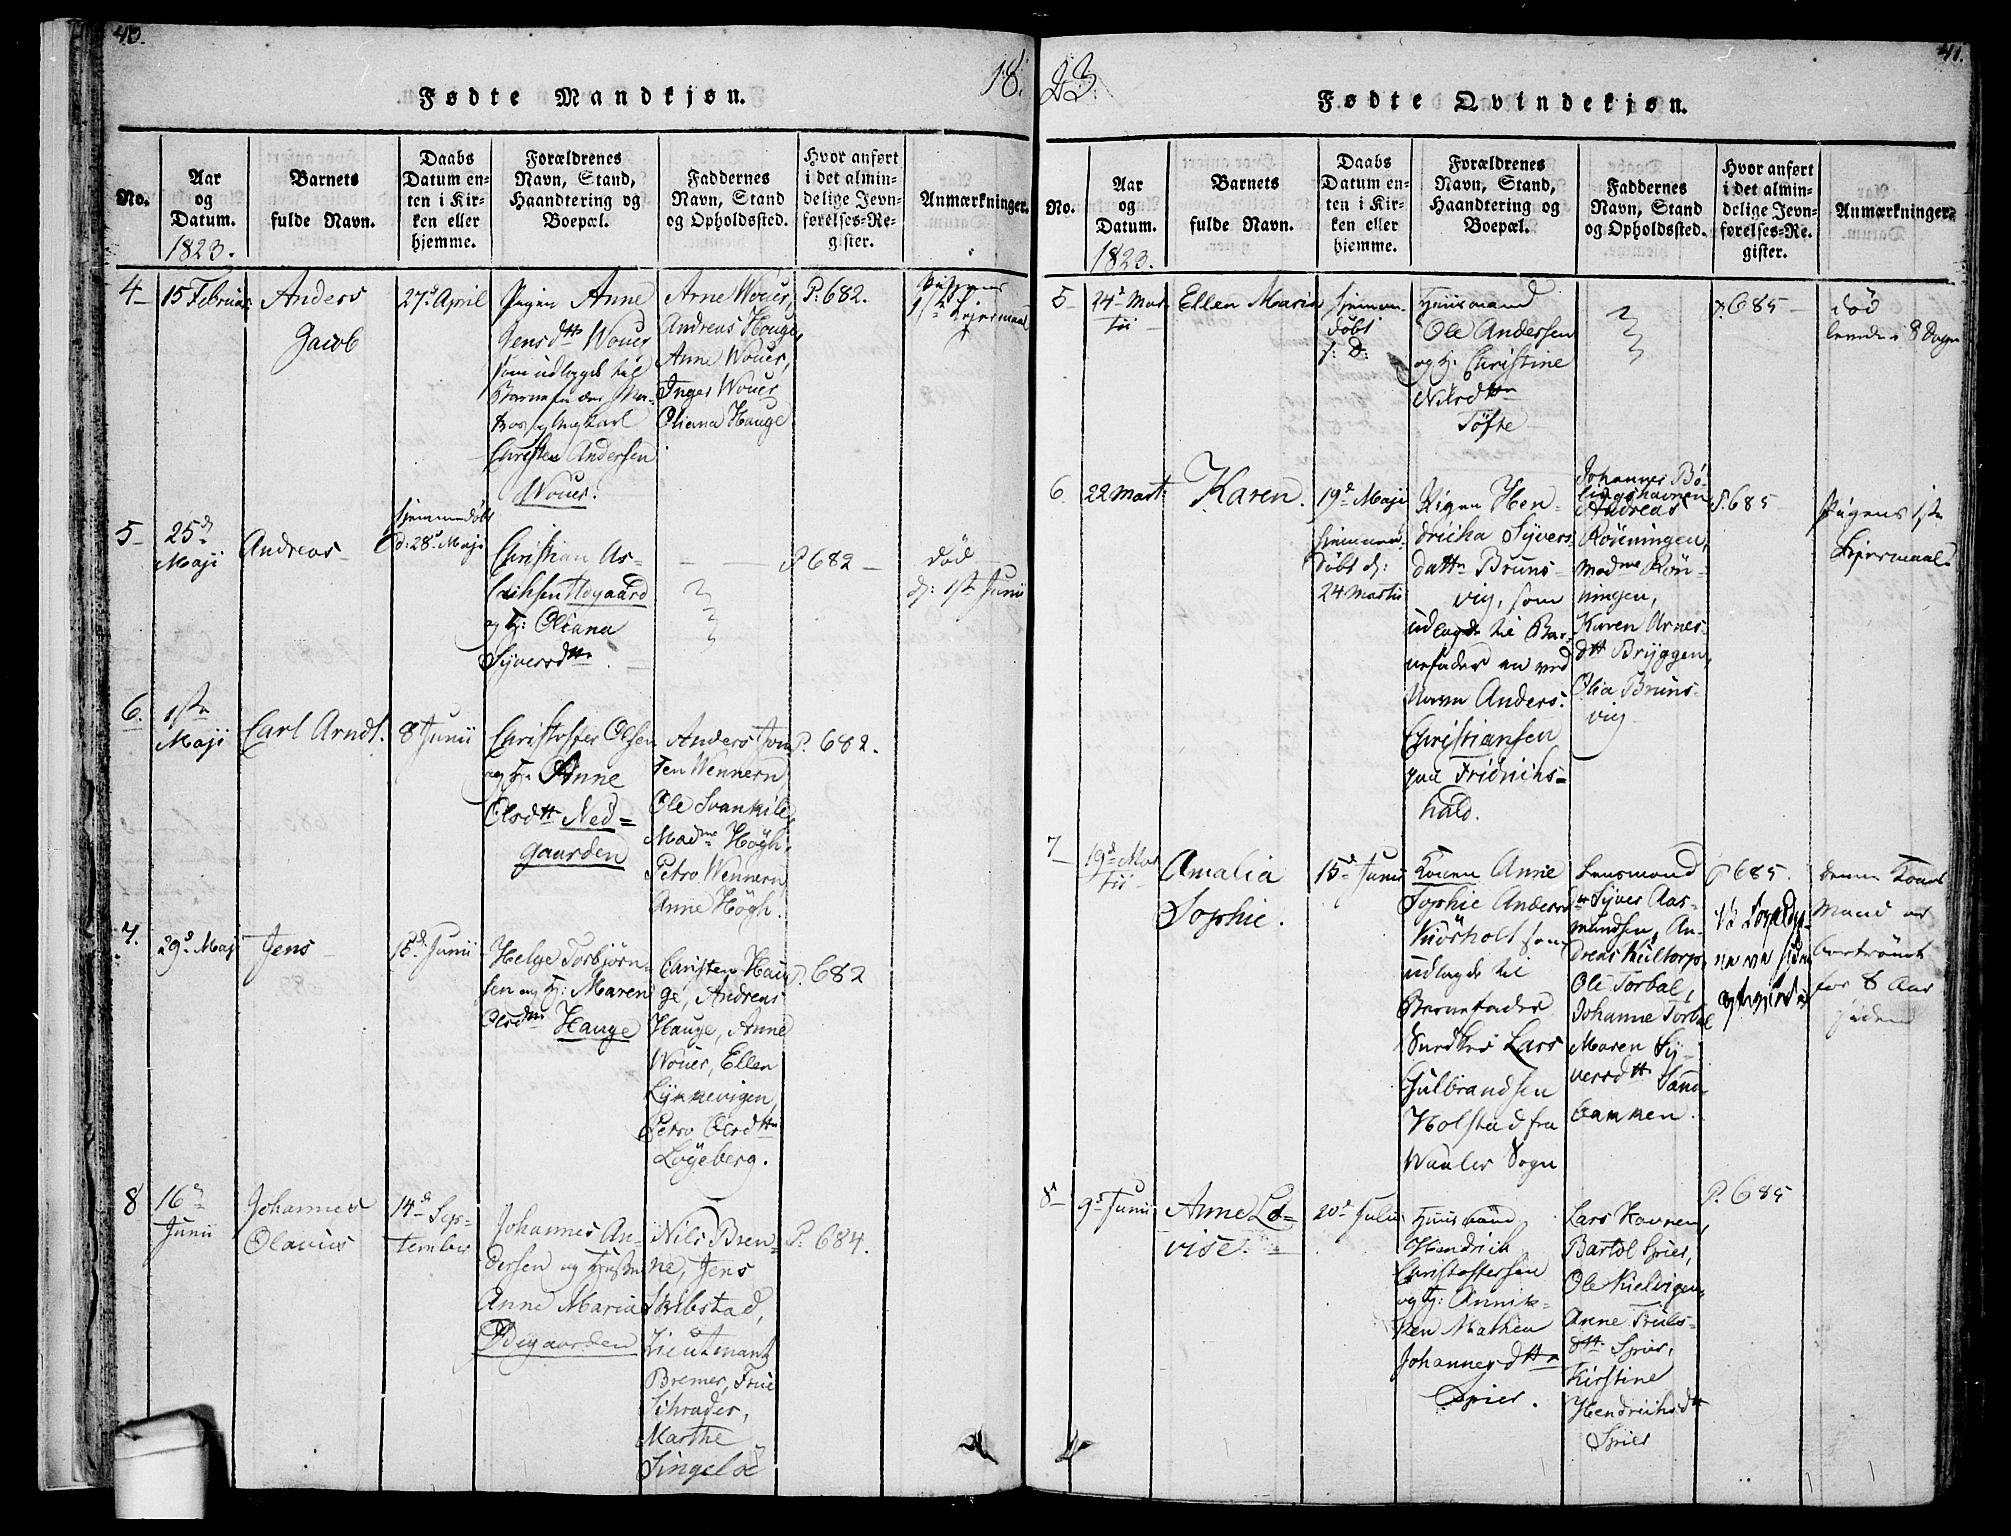 40.
18.
Fødte Mandkjøn.
No.
Aar
og
Datum.
1823.
Barnets
fulde Navn.
Daabs
Datum en-
ten i Kir-
ken eller
hjemme.
Forældrenes
Navn, Stand,
Haandtering og
Boepæl.
Faddernes
Navn, Stand
og Opholdssted.
Hvor anført
i det almin-
delige Jevn-
førelses-Re-
gister.
Anmærkninger.
4
15 Februar
Anders
Jacob
27d April
Pigen Anne
Jensdtt Wouer
som udlagde til
Barnefader Ma-
tros og Ungkarl
Christen Andersen
Wouer.
Arne Wouer,
Andreas Houge,
Anne Wouer,
Inger Wouer,
Oliana Hauge
P: 682.
Pigens
1ste Leiermaal
5
25d
Maji
Andreas
hjemmedöbt
d: 28d Maji
Christian As-
lachsen Ödgaard
og H: Oliana
Syversdttr
P 682
död
d: 1ste Junii
6.
1ste
Maji
Carl Arndt.
8 Junii
Christoffer Olsen
og H: Anne
Olsdtt Ned=
gaarden
Anders
Wennern
Ole Svankile,
Madme Høgh.
Petro Wennern
Anne Høgh.
P. 682.
7.
29d Maji
Jens
15d Junii
Helge Torbjørn-
sen og H: Maren
Olsdtr Hauge
Christen Hau-
ge, Andreas
Hauge, Anne
Wouer, Ellen
Lÿnnevigen,
Petro Olsdttr
Løgeberg.
P. 682
8
16d
Junii
Johannes
Olavius
14d Sep-
tember
Johannes An-
dersen og Hustru
Anne Maria
Ödegaarden
Nils Bren-
ne, Jens
Skibstad,
Lieutenant
Bremer, Frue
Schrader,
Marthe
Singeløe
P: 684.
41.
23.
Fødte Qvindekjøn.
No.
Aar
og
Datum.
1823.
Barnets
fulde Navn.
Daabs
Datum en-
ten i Kir-
ken eller
hjemme.
Forældrenes
Navn, Stand,
Haandtering og
Boepæl.
Faddernes
Navn, Stand
og Opholdssted.
Hvor anført
i det almin-
delige Jevn-
førelses-Re-
gister.
Anmærkninger.
5
24d Mar-
tii
Ellen Maria
hjemme
döbt
s: D:
Huusmand
Ole Andersen
og H: Christine
Nilsdttr
Tøfte
P. 685
död
levede 8 Dage
6.
22 Marti
Karen.
19d Maji
hjemme
döbt d:
24 Martii
Pigen Hen-
dricha Syvers-
dattr Bruns-
vig, som
udlagde til Bar-
nefader en ved
Navn Anders
Christiansen
paa Fridrichs-
hald.
Johannes Bö-
lingshavnen
Andreas
Rönningen,
Madme Rön-
ningen,
Karen Arnes-
dtt Bryggen,
Olia Bruns-
vig
P. 685
Pigens 1ste
Leiermaal
7
19d Mar-
tii
Amalia
Sophie.
15d Junii
Konen Anne
Sophie Andersd
Kiörholt som
udlagde til
Barnefader
Lars
Gulbrandsen
Holstad fra
Waaler Sogn
Lensmand
Syver Aas-
mundsen, An-
dreas Kultorp,
Ole Torbal,
Johanne Torbal
Maren Sÿ-
versdtt Sand-
bakken.
P 685.
denne Kones
Mand er
bortrömt
for 8 Aar
siden
8
9d Junii
Anne Lo-
vise.
20d Julii
Huusmand
Hendrich
Christoffersen
og H: Annik-
ken Mathea
Johannesdttr
Spier.
Lars Havnen,
Bartol Spier,
Ole Kielvigen,
Anne Truls-
dtt Spier,
Kirstine
Hendrichsdtt
Spier
P. 685